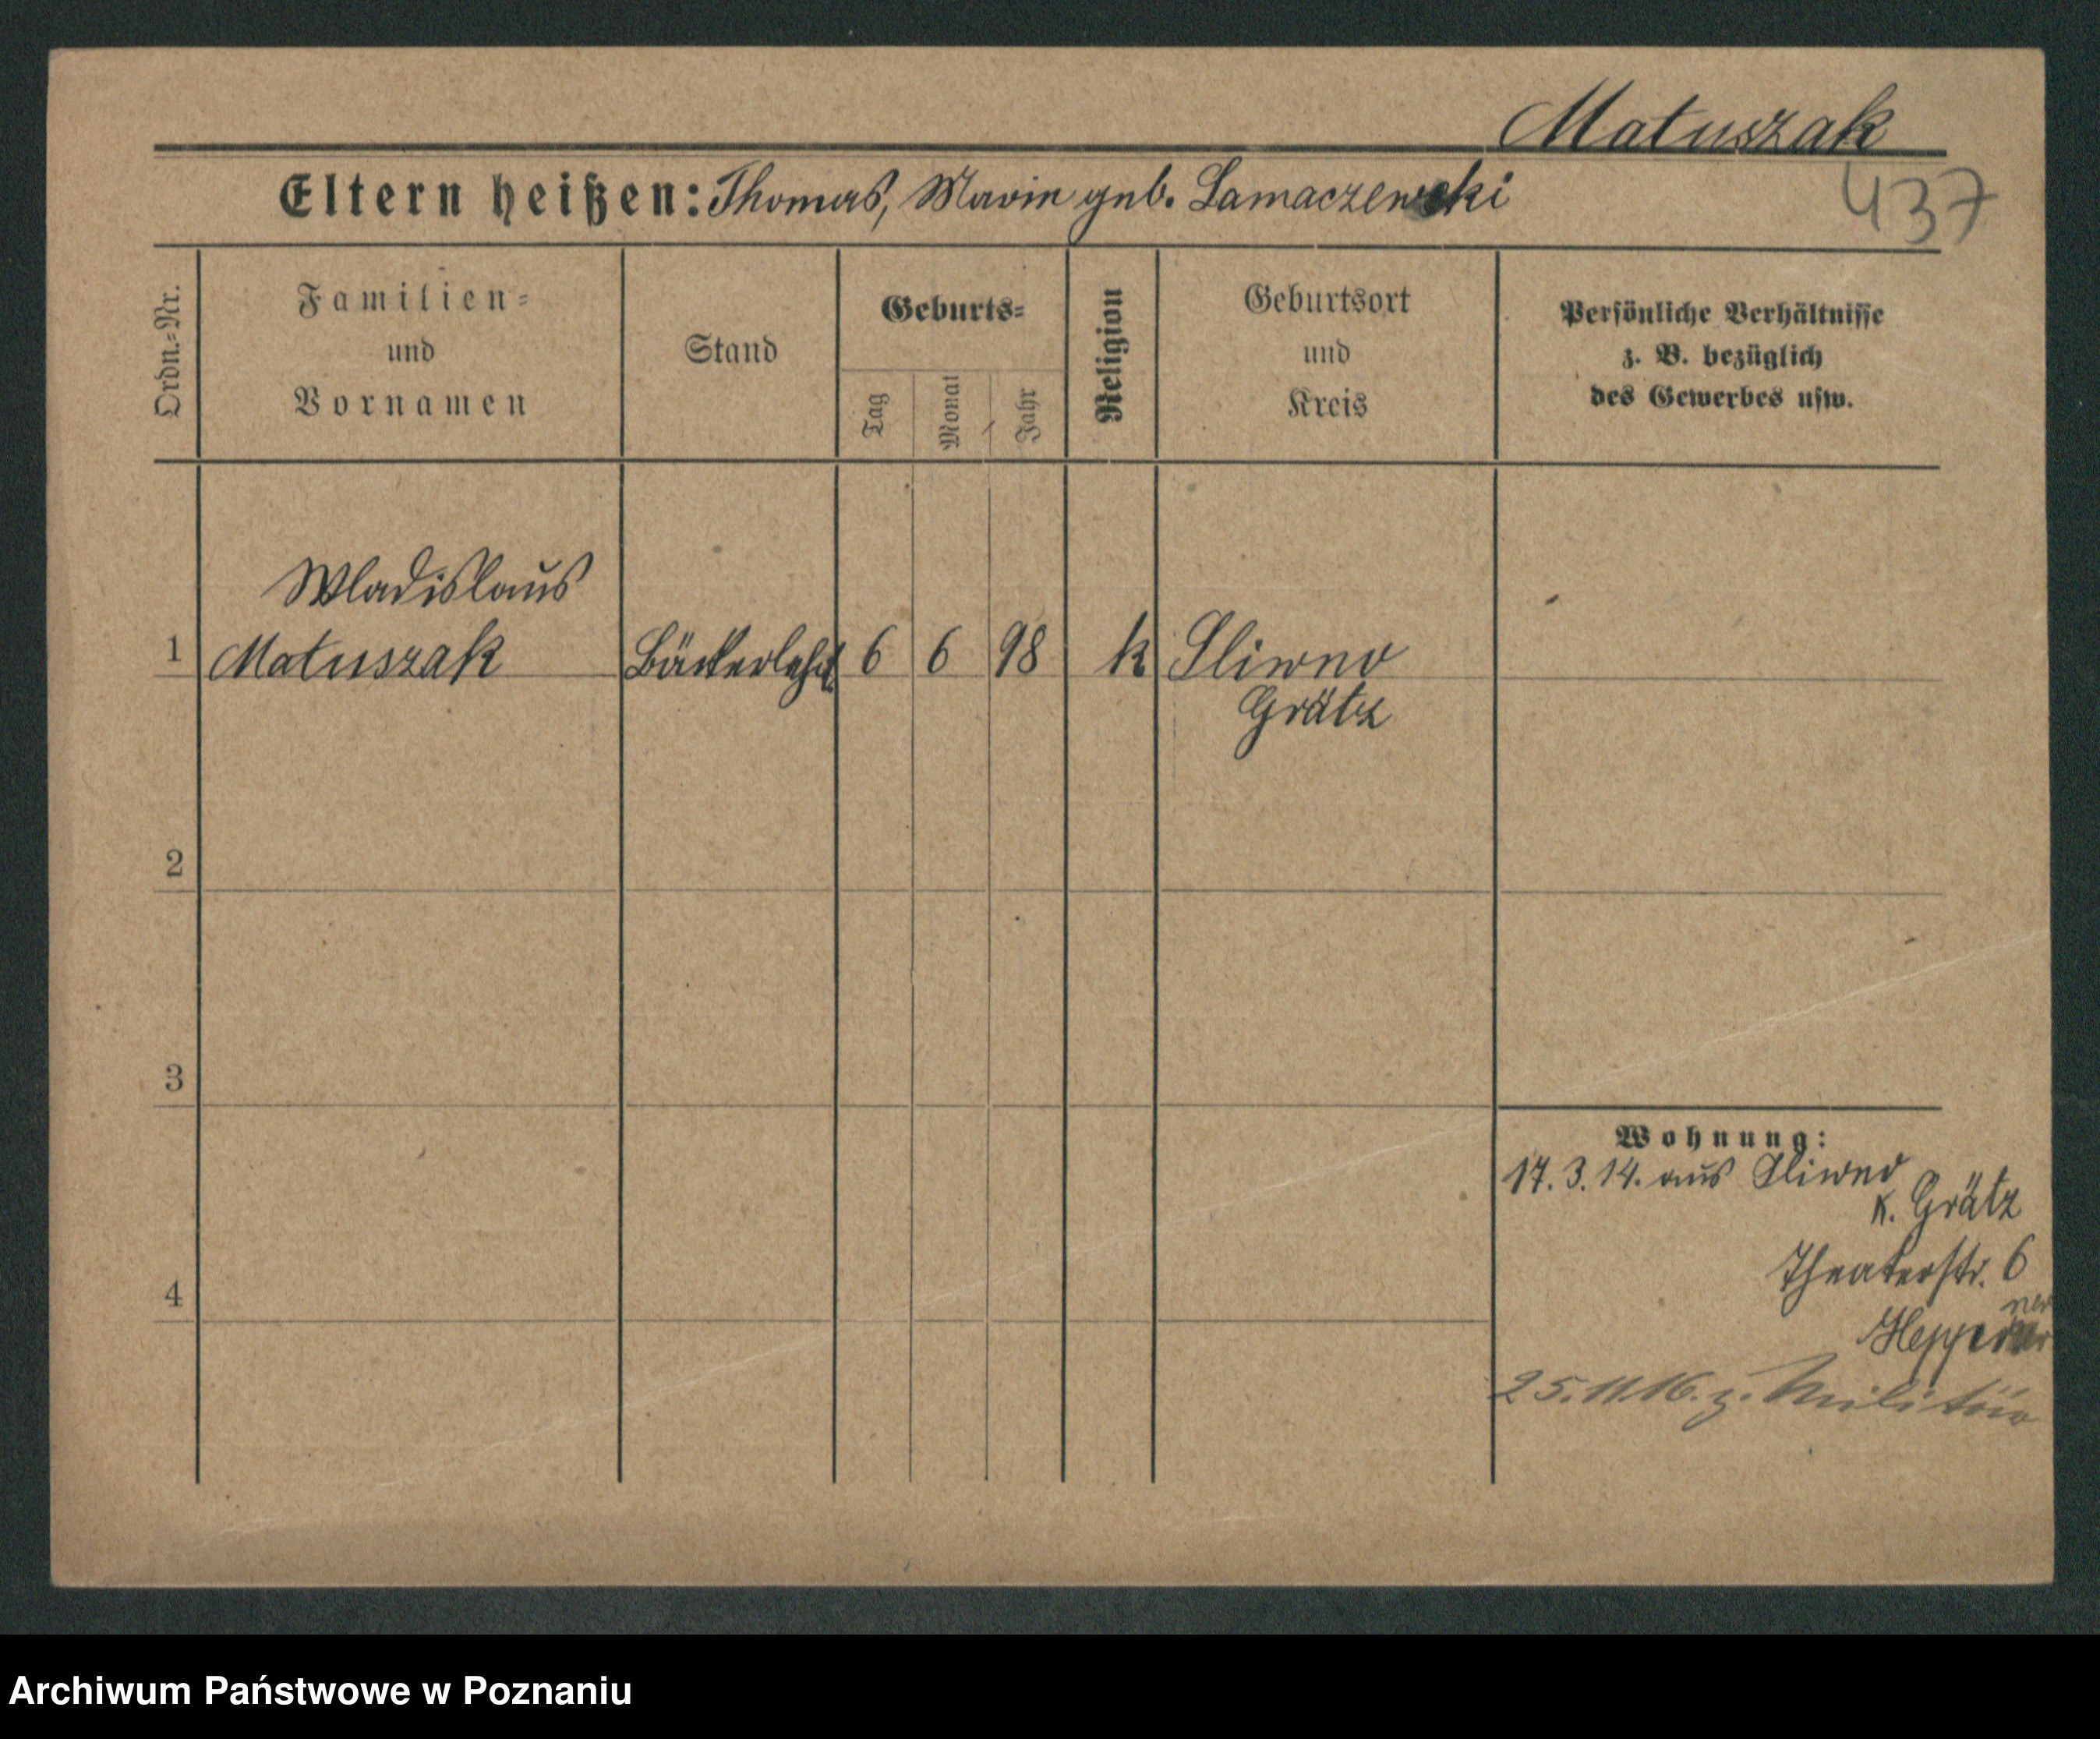 Matuszak
437
Eltern heißen: Thomas, Marie geb. Lamaczewski
Ordn.-Nr.
Familien-
und
Vornamen
Stand
Geburts-
Tag
Monat
Jahr
Religion
Geburtsort
und
Kreis
Persönliche Verhältnisse
z. B. bezüglich
des Gewerbes usw.
Wladislaus
1 Matuszak Bäckerlehrl. 6 6 98 k Sliwno
Grätz
2
3
4
Wohnung:
17.3.14. aus Sliwno
K. Grätz
Theaterstr. 6
25.11.16. z. Militär
Archiwum Państwowe w Poznaniu